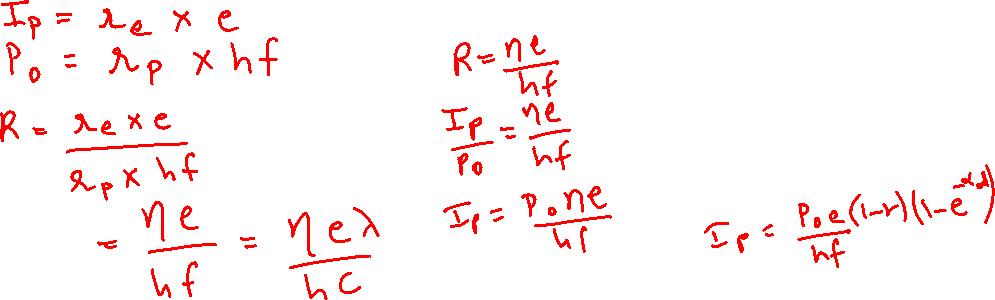 I_p = r_e × e
P_o = r_p × hf
R = (r_e × e)/(r_p × hf)
= ηe/hf = ηeλ/hc
R = ηe/hf
I_p/P_o = ηe/hf
I_p = P_o ηe/hf
I_p = P_o e/hf (1-r)(1-e^{-αd})